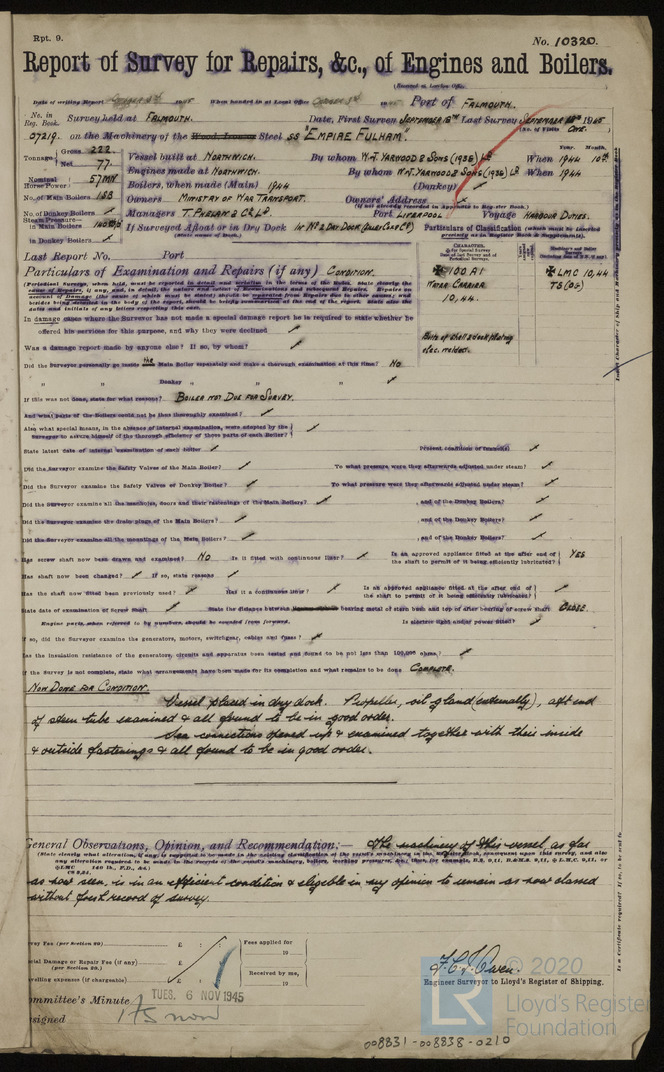 Rpt. 9.
No. 10320.
Report of Survey for Repairs, &c., of Engines and Boilers.
(Received at London Office
Date of writing Report 19 When handed in at Local Office 19 Port of FALMOUTH.
No. in Reg. Book. Survey held at FALMOUTH. Date, First Survey SEPTEMBER 18TH Last Survey SEPTEMBER 18TH 1945
(No. of Visits ONE.
07219. on the Machinery of the Wood, Iron or Steel SS "EMPIRE FULHAM".
Tonnage Gross 222
Net 77
Vessel built at NORTHWICH. By whom W.J. YARWOOD & SONS (1938) LD When 1944 10TH
Year. Month.
Engines made at NORTHWICH. By whom W.J. YARWOOD & SONS (1938) LD When 1944
Nominal Horse Power 57 MN
Boilers, when made (Main) 1944 (Donkey)
No. of Main Boilers 1SB
Owners MINISTRY OF WAR TRANSPORT. Owners' Address
(If not already recorded in Appendix to Register Book.)
No. of Donkey Boilers
Managers T. PHELAN & CO LD. Port LIVERPOOL Voyage HARBOUR DUTIES.
Steam Pressure in Main Boilers
in Donkey Boilers
If Surveyed Afloat or in Dry Dock IN No 2 DRY DOCK
(State name of Dock.)
Particulars of Classification
Last Report No. Port
Particulars of Examination and Repairs (if any) CONDITION.
✠ 100 A1
WATER CARRIER
10,44.
✠ LMC 10,44
TS (OG)
Butts of shell & deck plating elec. welded.
In damage cases where the Surveyor has not made a special damage report he is required to state whether he
offered his services for this purpose, and why they were declined
Was a damage report made by anyone else? If so, by whom?
Did the Surveyor personally go inside the Main Boiler separately and make a thorough examination at this time? No
" " Donkey " " "
If this was not done, state for what reasons? BOILER NOT DUE FOR SURVEY.
And what parts of the Boilers could not be thus thoroughly examined?
Also what special means, in the absence of internal examination, were adopted by the
Surveyor to assure himself of the thorough efficiency of those parts of each Boiler?
State latest date of internal examination of each boiler Present condition of funnel(s)
Did the Surveyor examine the Safety Valves of the Main Boiler? To what pressure were they afterwards adjusted under steam?
Did the Surveyor examine the Safety Valves of Donkey Boiler? To what pressure were they afterwards adjusted under steam?
Did the Surveyor examine all the manholes, doors and their fastenings of the Main Boilers? , and of the Donkey Boilers?
Did the Surveyor examine the drain plugs of the Main Boilers? , and of the Donkey Boilers?
Did the Surveyor examine all the mountings of the Main Boilers? , and of the Donkey Boilers?
Has screw shaft now been drawn and examined? No Is it fitted with continuous liner? Is an approved appliance fitted at the after end of
the shaft to permit of it being efficiently lubricated? YES
Has shaft now been changed? If so, state reasons
Has the shaft now fitted been previously used? Has it a continuous liner? Is an approved appliance fitted at the after end of
the shaft to permit of it being efficiently lubricated?
State date of examination of Screw Shaft State the distance between bearing metal of stern bush and top of after bearing of screw shaft CLOSE.
Engine parts, when referred to by numbers, should be counted from forward. Is electric light and/or power fitted?
If so, did the Surveyor examine the generators, motors, switchgear, cables and fuses?
Has the insulation resistance of the generators, circuits and apparatus been tested and found to be not less than 100,000 ohms?
If the Survey is not complete, state what arrangements have been made for its completion and what remains to be done COMPLETE.
NOW DONE FOR CONDITION.
Vessel placed in dry dock. Propeller, oil gland (externally), aft end
of stern tube examined & all found to be in good order.
Sea connections opened up & examined together with their inside
& outside fastenings & all found to be in good order.
General Observations, Opinion, and Recommendation:— The machinery of this vessel as far
as now seen, is in an efficient condition & eligible in my opinion to remain as now classed
without fresh record of survey.
Survey Fee (per Section 29) £ : : Fees applied for
19
Special Damage or Repair Fee (if any) £
(per Section 29.)
Travelling expenses (if chargeable) £ Received by me,
19
Engineer Surveyor to Lloyd's Register of Shipping.
Committee's Minute TUES. 6 NOV 1945
Assigned As now
Is a Certificate required? If so, to be sent to
© 2020
LR
Lloyd's Register
Foundation
008831-008838-0210